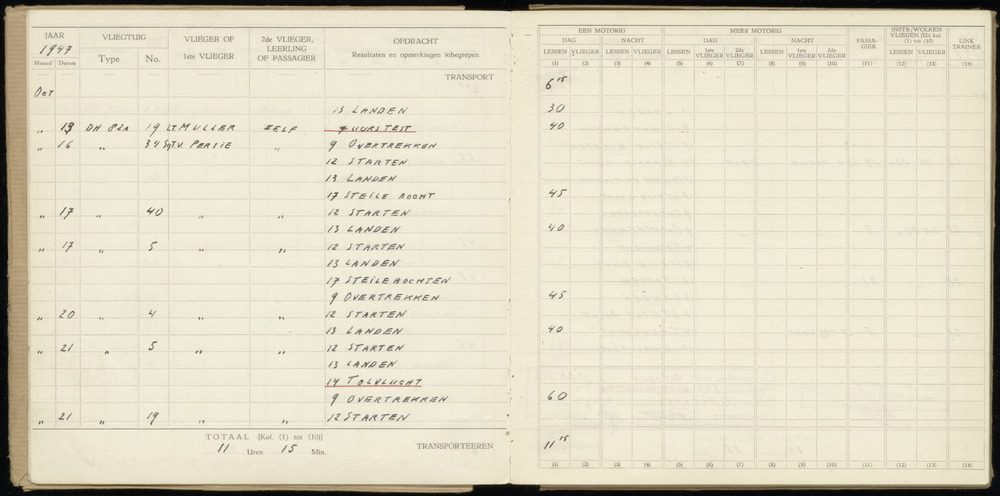 JAAR VLIEGTUIG VLIEGER OF 1ste VLIEGER 2de VLIEGER, LEERLING OF PASSAGIER OPDRACHT
1947 Type No. Resultaten en opmerkingen inbegrepen
Maand Datum
TRANSPORT
Oct
13 LANDEN
" 13 DH 82A 19 LT. MULLER ZELF UURSTEST
" 16 " 34 Sgt. v. PERSIE " 9 OVERTREKKEN
12 STARTEN
13 LANDEN
17 STEILE BOCHT
" 17 " 40 " " 12 STARTEN
13 LANDEN
" 17 " 5 " " 12 STARTEN
13 LANDEN
17 STEILE BOCHTEN
9 OVERTREKKEN
" 20 " 4 " " 12 STARTEN
13 LANDEN
" 21 " 5 " " 12 STARTEN
13 LANDEN
14 TOLVLUCHT
9 OVERTREKKEN
" 21 " 19 " " 12 STARTEN
TOTAAL [Kol. (1) tot (10)]
11 Uren 15 Min.
TRANSPORTEEREN
EEN MOTORIG MEER MOTORIG PASSA-GIER INSTR/WOLKEN VLIEGEN [Uit kol. (1) tot (10)] LINK TRAINER
DAG NACHT DAG NACHT
LESSEN VLIEGER LESSEN VLIEGER LESSEN 1ste VLIEGER 2de VLIEGER LESSEN 1ste VLIEGER 2de VLIEGER LESSEN VLIEGER
(1) (2) (3) (4) (5) (6) (7) (8) (9) (10) (11) (12) (13) (14)
6 15
30
40
45
40
45
40
60
11 15
(1) (2) (3) (4) (5) (6) (7) (8) (9) (10) (11) (12) (13) (14)